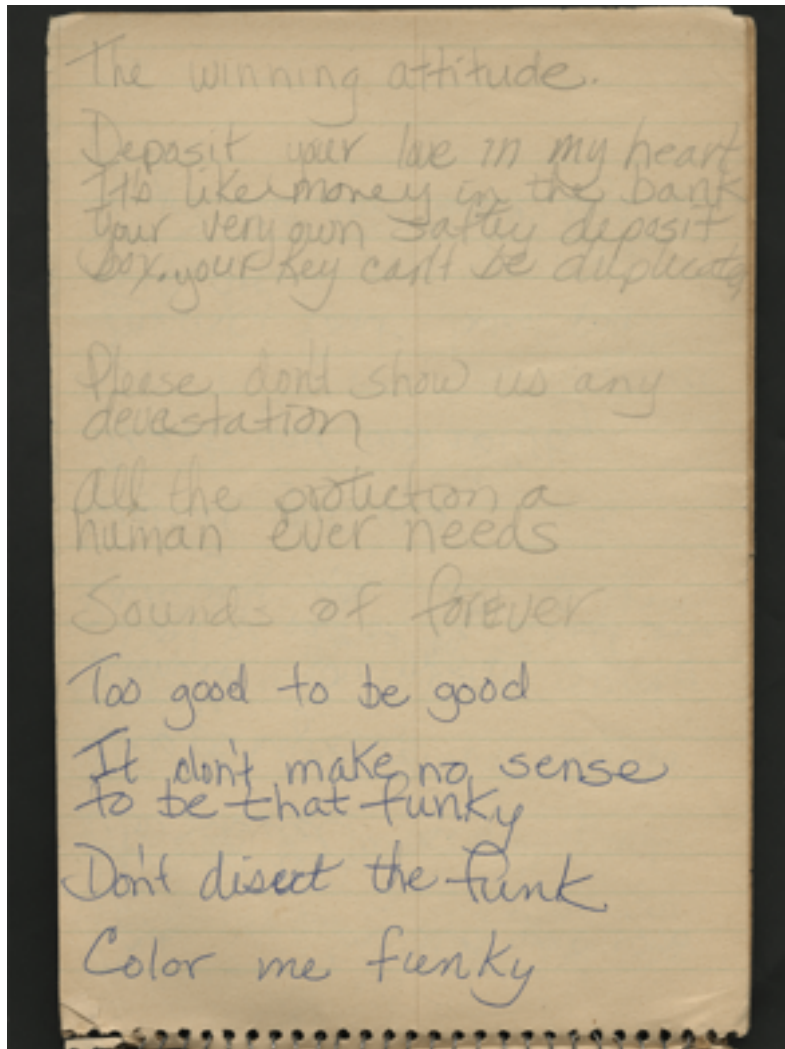 The winning attitude.
Deposit your love in my heart
It's like money in the bank
Your very own saftey deposit
box. your key can't be duplicated
Please don't show us any
devastation
All the protection a
human ever needs
Sounds of forever
Too good to be good
It don't make no sense
to be that funky
Don't disect the funk
Color me funky